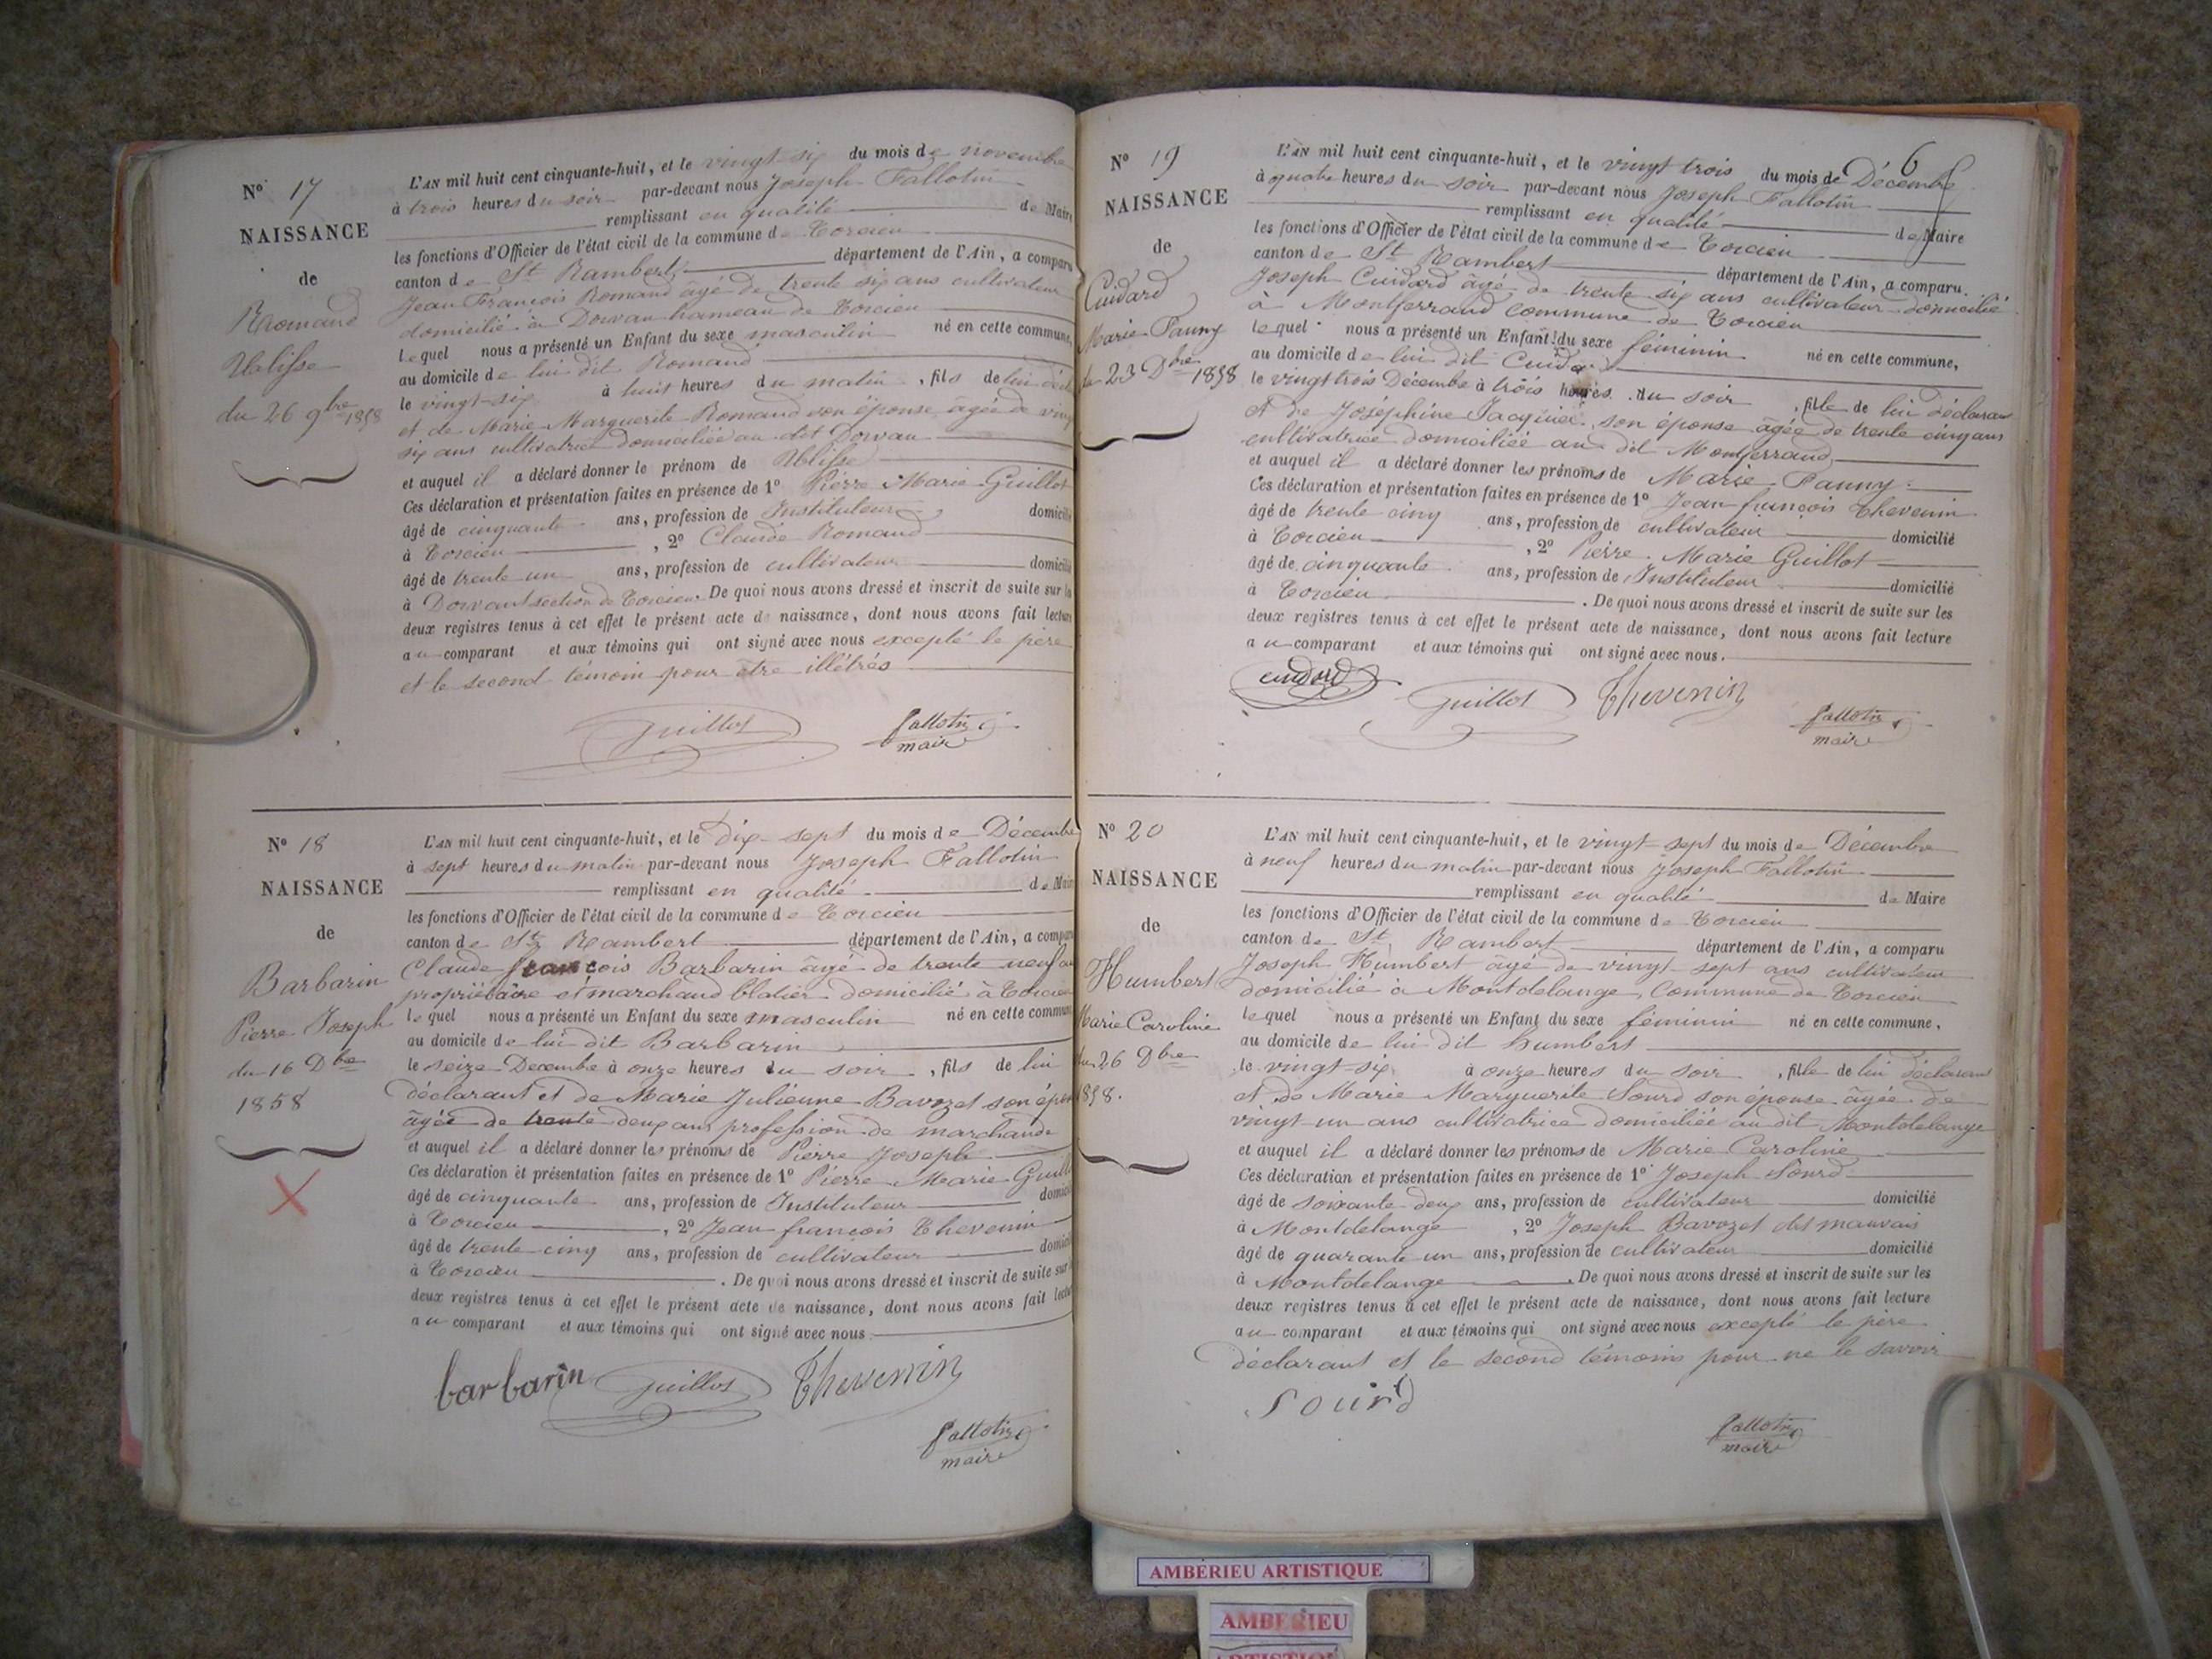 N° 17
NAISSANCE
de
Romand
Ulisse
du 26 9bre 1858
L'AN mil huit cent cinquante-huit, et le vingt-six du mois de novembre
à trois heures du soir par-devant nous Joseph Fallotin
remplissant en qualité de Maire
les fonctions d'Officier de l'état civil de la commune de Torcieu
canton de St Rambert département de l'Ain, a comparu
Jean François Romand âgé de trente six ans cultivateur
domicilié à Dorvan hameau de Torcieu
lequel nous a présenté un Enfant du sexe masculin né en cette commune,
au domicile de lui dit Romand
le vingt-six à huit heures du matin, fils de lui décl
et de Marie Marguerite Romand son épouse âgée de vingt
six ans cultivatrice domiciliée au dit Dorvan
et auquel il a déclaré donner le prénom de Ulisse
Ces déclaration et présentation faites en présence de 1° Pierre Marie Guillot
âgé de cinquante ans, profession de Instituteur domicilié
à Torcieu, 2° Claude Romand
âgé de trente un ans, profession de cultivateur domicilié
à Dorvant section de Torcieu. De quoi nous avons dressé et inscrit de suite sur les
deux registres tenus à cet effet le présent acte de naissance, dont nous avons fait lecture
au comparant et aux témoins qui ont signé avec nous excepté le père
et le second témoin pour être illétrés
Guillot fallotin
maire
N° 18
NAISSANCE
de
Barbarin
Pierre Joseph
du 16 Dbre
1858
L'AN mil huit cent cinquante-huit, et le dix-sept du mois de Décembre
à sept heures du matin par-devant nous Joseph Fallotin
remplissant en qualité de Maire
les fonctions d'Officier de l'état civil de la commune de Torcieu
canton de St Rambert département de l'Ain, a comparu
Claude françois Barbarin âgé de trente neuf ans
propriètaire et marchand blatier domicilié à Torcieu
lequel nous a présenté un Enfant du sexe masculin né en cette commune
au domicile de lui dit Barbarin
le seize Decembre à onze heures du soir, fils de lui
déclarant et de Marie Julienne Bavozet son épouse
âgée de trente deux ans profession de marchande
et auquel il a déclaré donner les prénoms de Pierre Joseph
Ces déclaration et présentation faites en présence de 1° Pierre Marie Guillot
âgé de cinquante ans, profession de Instituteur domicilié
à Torcieu, 2° Jean françois Thevenin
âgé de trente-cinq ans, profession de cultivateur domicilié
à Torcieu. De quoi nous avons dressé et inscrit de suite sur
deux registres tenus à cet effet le présent acte de naissance, dont nous avons fait lecture
au comparant et aux témoins qui ont signé avec nous
barbarin Guillot Thevenin
fallotin
maire
6
N° 19
NAISSANCE
de
Cuidard
Marie Fanny
du 23 Dbre 1858
L'AN mil huit cent cinquante-huit, et le vingt trois du mois de Décembre
à quatre heures du soir par-devant nous Joseph Fallotin
remplissant en qualité de Maire
les fonctions d'Officier de l'état civil de la commune de Torcieu
canton de St Rambert département de l'Ain, a comparu
Joseph Cuidard âgé de trente six ans cultivateur domicilié
à Montferrand Commune de Torcieu
lequel nous a présenté un Enfant du sexe féminin né en cette commune,
au domicile de lui dit Cuidard
le vingt trois Décembre à trois heures du soir, fille de lui déclarant
et de Joséphine Jacquier son épouse âgée de trente cinq ans
cultivatrice domiciliée au dit Montferrand
et auquel il a déclaré donner les prénoms de Marie Fanny
Ces déclaration et présentation faites en présence de 1° Jean françois Thevenin
âgé de trente cinq ans, profession de cultivateur domicilié
à Torcieu, 2° Pierre Marie Guillot
âgé de cinquante ans, profession de Instituteur domicilié
à Torcieu. De quoi nous avons dressé et inscrit de suite sur les
deux registres tenus à cet effet le présent acte de naissance, dont nous avons fait lecture
au comparant et aux témoins qui ont signé avec nous.
cuidard Guillot Thevenin fallotin
maire
N° 20
NAISSANCE
de
Humbert
Marie Caroline
du 26 Dbre
1858.
L'AN mil huit cent cinquante-huit, et le vingt-sept du mois de Décembre
à neuf heures du matin par-devant nous Joseph Fallotin
remplissant en qualité de Maire
les fonctions d'Officier de l'état civil de la commune de Torcieu
canton de St Rambert département de l'Ain, a comparu
Joseph Humbert âgé de vingt-sept ans cultivateur
domicilié à Montdelange, Commune de Torcieu
lequel nous a présenté un Enfant du sexe féminin né en cette commune,
au domicile de lui dit humbert
le vingt-six à onze heures du soir, fille de lui déclarant
et de Marie Marguerite Sourd son épouse âgée de
vingt-un ans cultivatrice domiciliée au dit Montdelange
et auquel il a déclaré donner les prénoms de Marie Caroline
Ces déclaration et présentation faites en présence de 1° Joseph Sourd
âgé de soixante deux ans, profession de cultivateur domicilié
à Montdelange, 2° Joseph Bavozet dit mauvais
âgé de quarante un ans, profession de cultivateur domicilié
à Montdelange. De quoi nous avons dressé et inscrit de suite sur les
deux registres tenus à cet effet le présent acte de naissance, dont nous avons fait lecture
au comparant et aux témoins qui ont signé avec nous excepté le père
déclarant et le second témoins pour ne le savoir
Sourd
fallotin
maire
AMBÉRIEU ARTISTIQUE
AMBERIEU
ARTISTIQUE